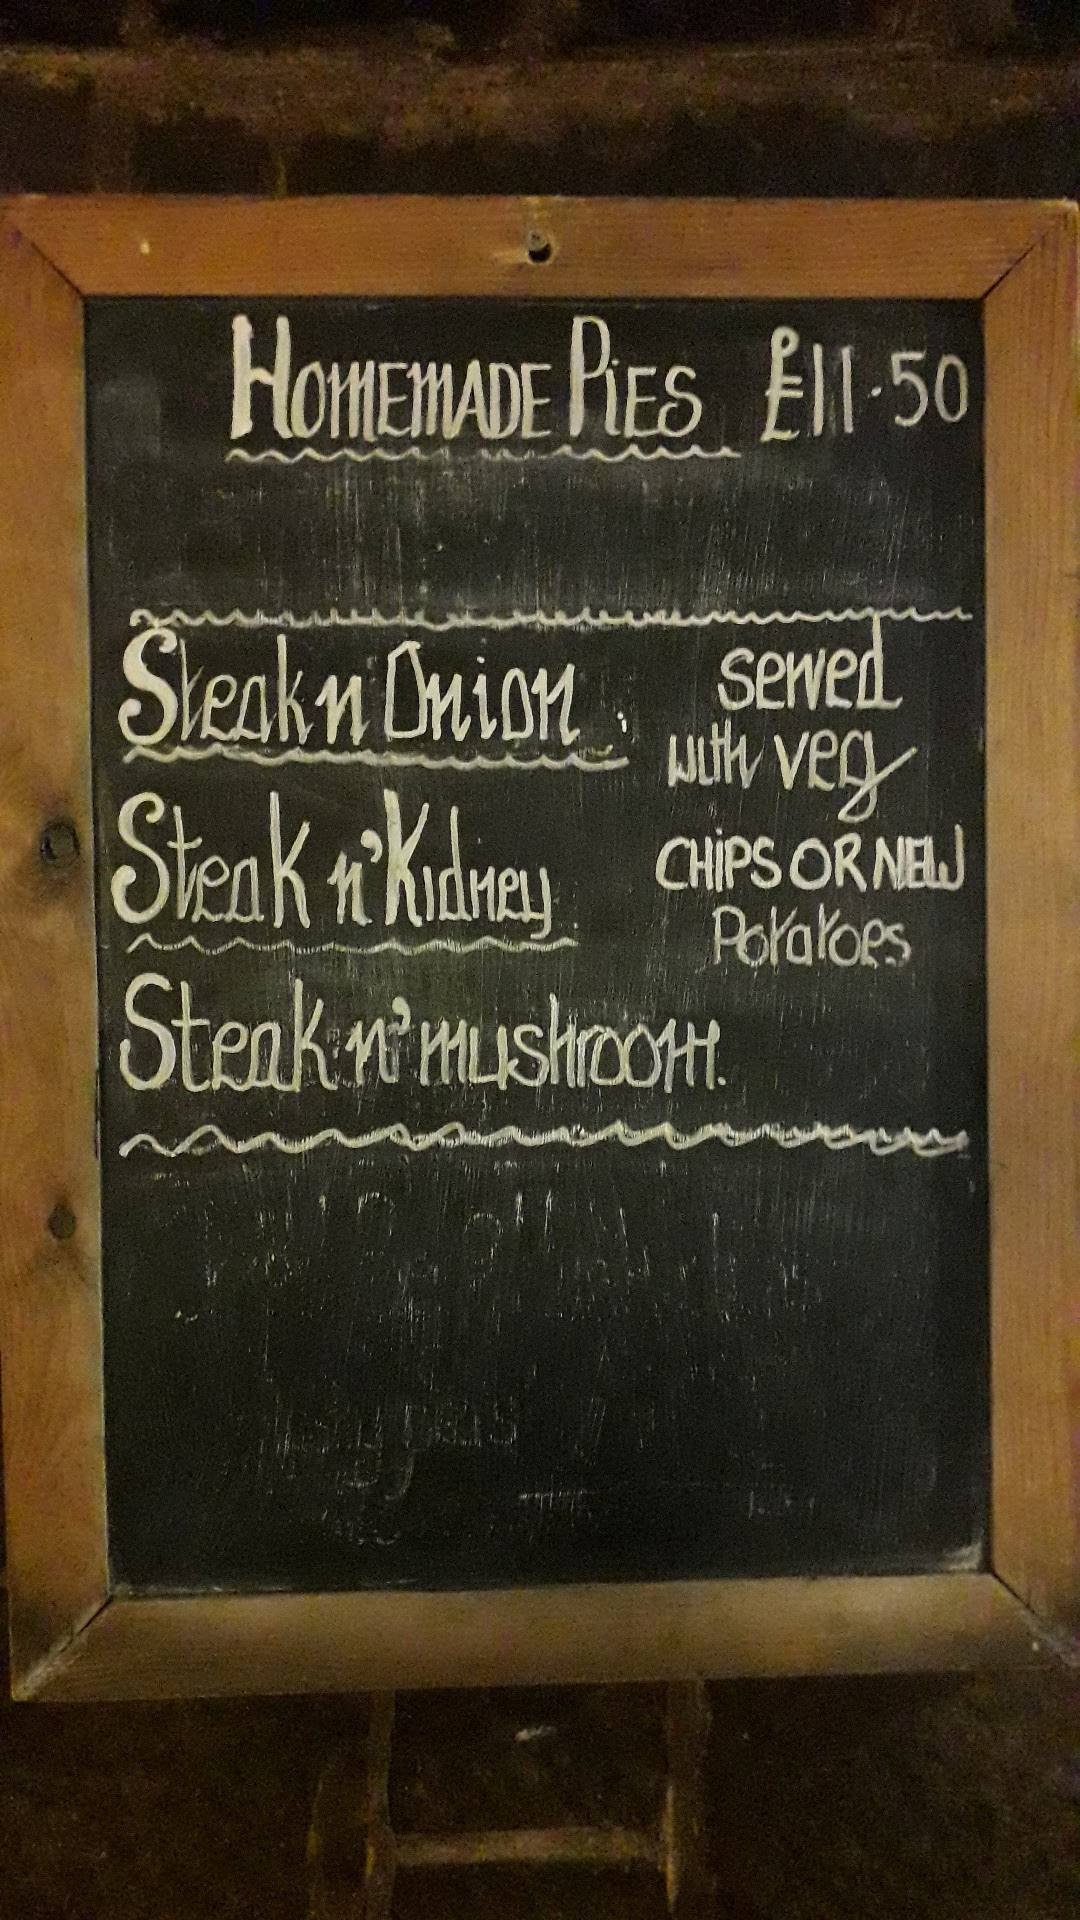 HOMEMADE PiES £11.50
Steak n Onion
Steak n' Kidney
Steak n' mushroom.
served
with veg
CHiPS OR NEW
Potatoes